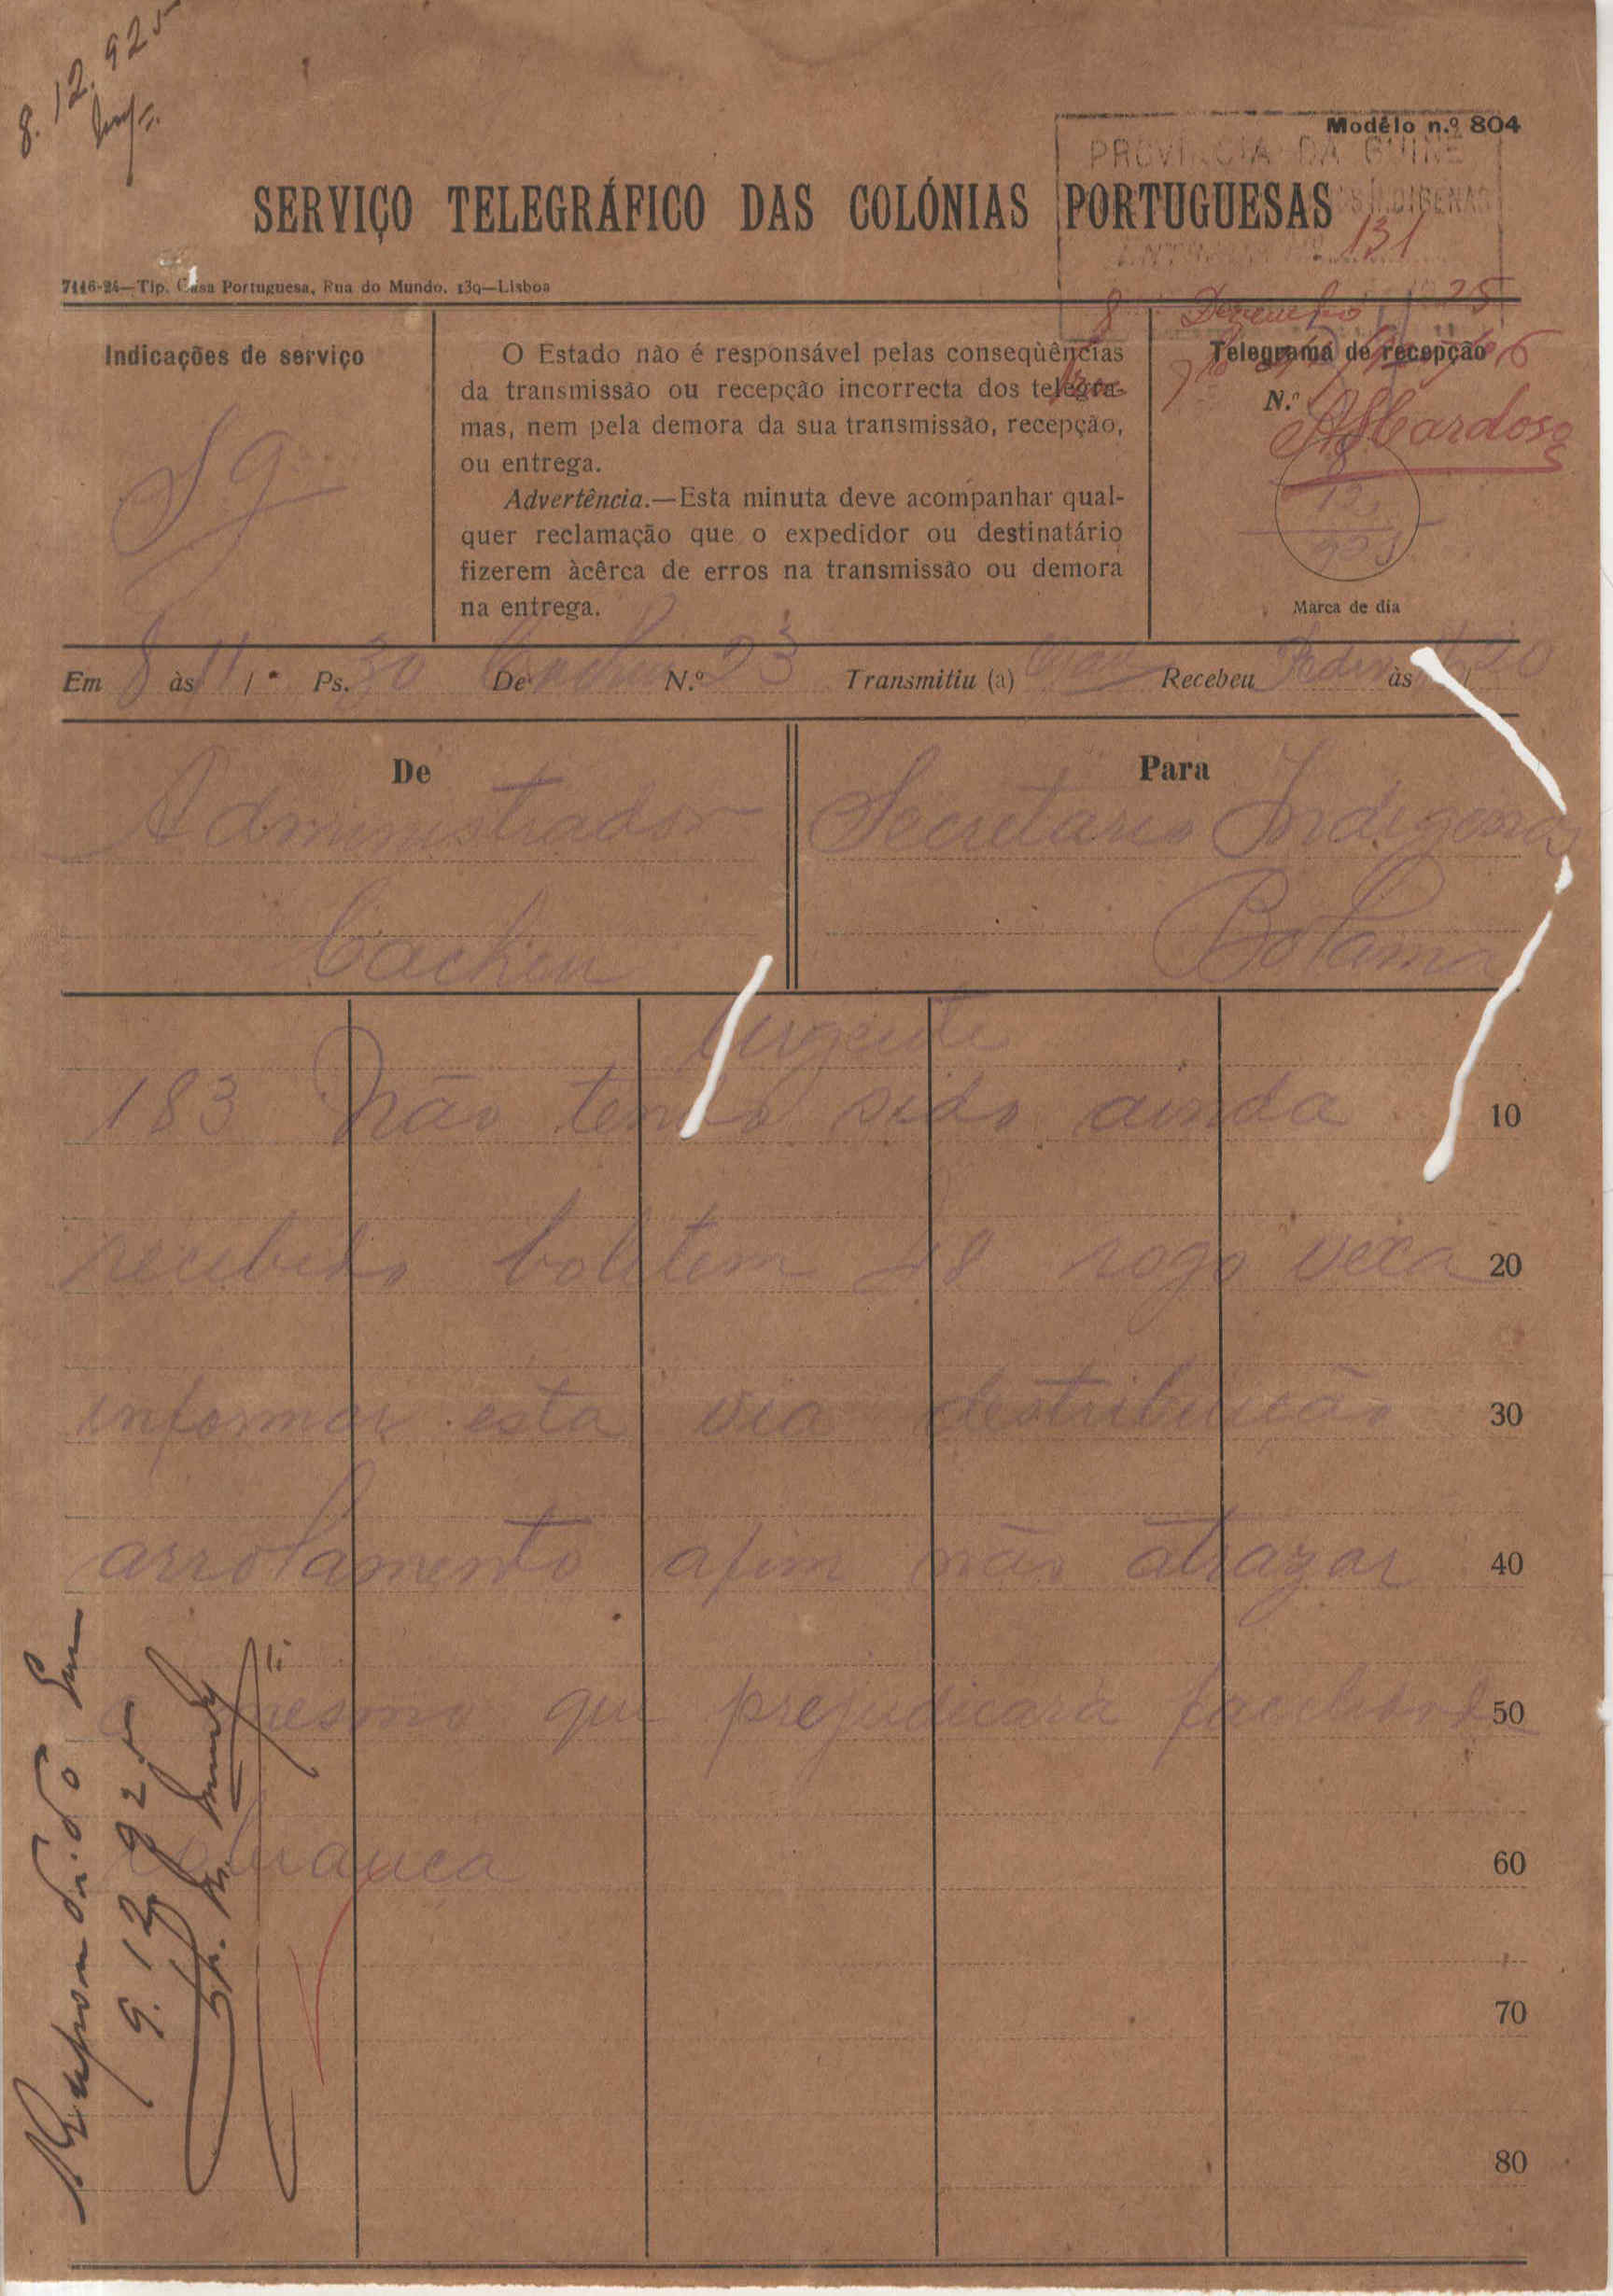 8.12.925
Modêlo n.º 804
PROVINCIA DA GUINÉ
SERVIÇO TELEGRÁFICO DAS COLÓNIAS PORTUGUESAS
INDIGENAS
131
7116-24—Tip. Casa Portuguesa, Rua do Mundo, 139—Lisboa
8 Dezembro 1925
Indicações de serviço
Sg
O Estado não é responsável pelas conseqùências
da transmissão ou recepção incorrecta dos telegra-
mas, nem pela demora da sua transmissão, recepção,
ou entrega.
Advertência.—Esta minuta deve acompanhar qual-
quer reclamação que o expedidor ou destinatário
fizerem àcêrca de erros na transmissão ou demora
na entrega.
Telegrama de recepção
N.º
Cardoso
8
12
925
Marca de dia
Em 8 às 11 Ps. 30 De Cacheu N.º 23 Transmitiu (a) Recebeu às 20
De
Administrador
Cacheu
Para
Secretario Indigenas
Bolama
Urgente
183 Não tendo sido ainda 10
recebido boletem 48 rogo vexa 20
informar esta via destribuição 30
arrolamento afim não atrazar 40
o mesmo que prejudicará facilidade 50
cobranca 60
70
80
Respondido em
9.12.925